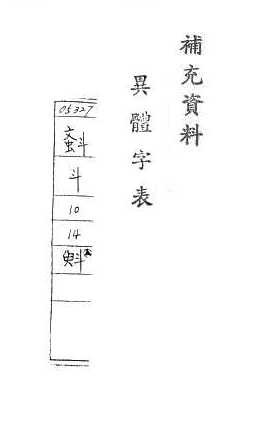 補充資料
異體字表
05327
斗
10
14
斞